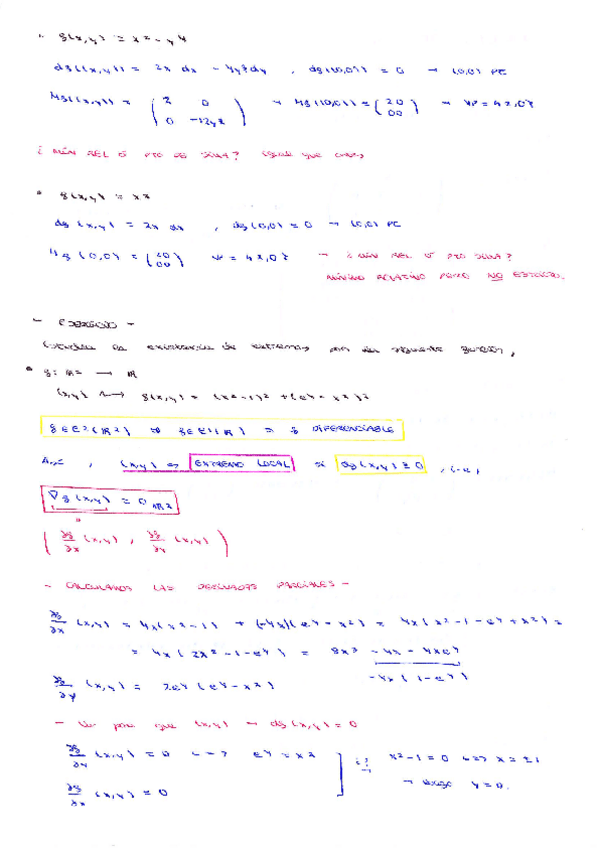 · g(x,y) = x² - y⁴
dg((x,y)) = 2x dx - 4y³dy , dg((0,0)) = 0 → (0,0) PC
Hg((x,y)) = ( 2 0 / 0 -12y² ) → Hg((0,0)) = ( 2 0 / 0 0 ) → VP = { 2, 0 }
¿ MÍN REL Ó PTO DE SILLA? igual que antes
• g(x,y) = x²
dg (x,y) = 2x dx , dg(0,0) = 0 → (0,0) PC
Hg (0,0) = ( 2 0 / 0 0 ) VP = { 2, 0 } → ¿ MÍN REL Ó PTO SILLA?
MÍNIMO RELATIVO PERO NO ESTRICTO.
- EJERCICIO -
Estudia la existencia de extremos para la siguiente función,
• g: ℝ² → ℝ
(x,y) ↦ g(x,y) = (x²-1)² + (eʸ - x²)²
g ∈ C²(ℝ²) ⇒ g ∈ C¹(ℝ) ⇒ g DIFERENCIABLE
Así , (x,y) es EXTREMO LOCAL si dg(x,y) ≡ 0 , i.e,
∇g (x,y) = 0 ℝ²
( ∂g/∂x (x,y) , ∂g/∂y (x,y) )
- CALCULAMOS LAS DERIVADAS PARCIALES -
∂g/∂x (x,y) = 4x(x²-1) + (-4x)(eʸ - x²) = 4x(x²-1-eʸ+x²) =
= 4x(2x²-1-eʸ) = 8x³ -4x - 4xeʸ
-4x(1-eʸ)
∂g/∂y (x,y) = 2eʸ(eʸ-x²)
- Ver para que (x,y) → dg(x,y)=0
∂g/∂y (x,y) = 0 <=> eʸ = x²
∂g/∂x (x,y) = 0
x²-1=0 <=> x = ±1
→ luego y=0.